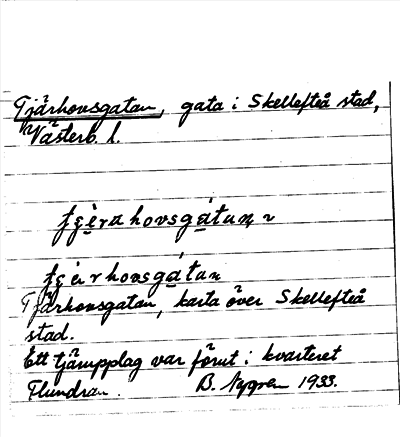 Tjärhovsgatan, gata i Skellefteå stad,
Västerb. l.
Tjärhovsgatan, karta över Skellefteå
stad.
Ett tjärupplag var förut i kvarteret
Flundran. B. Nygren 1933.